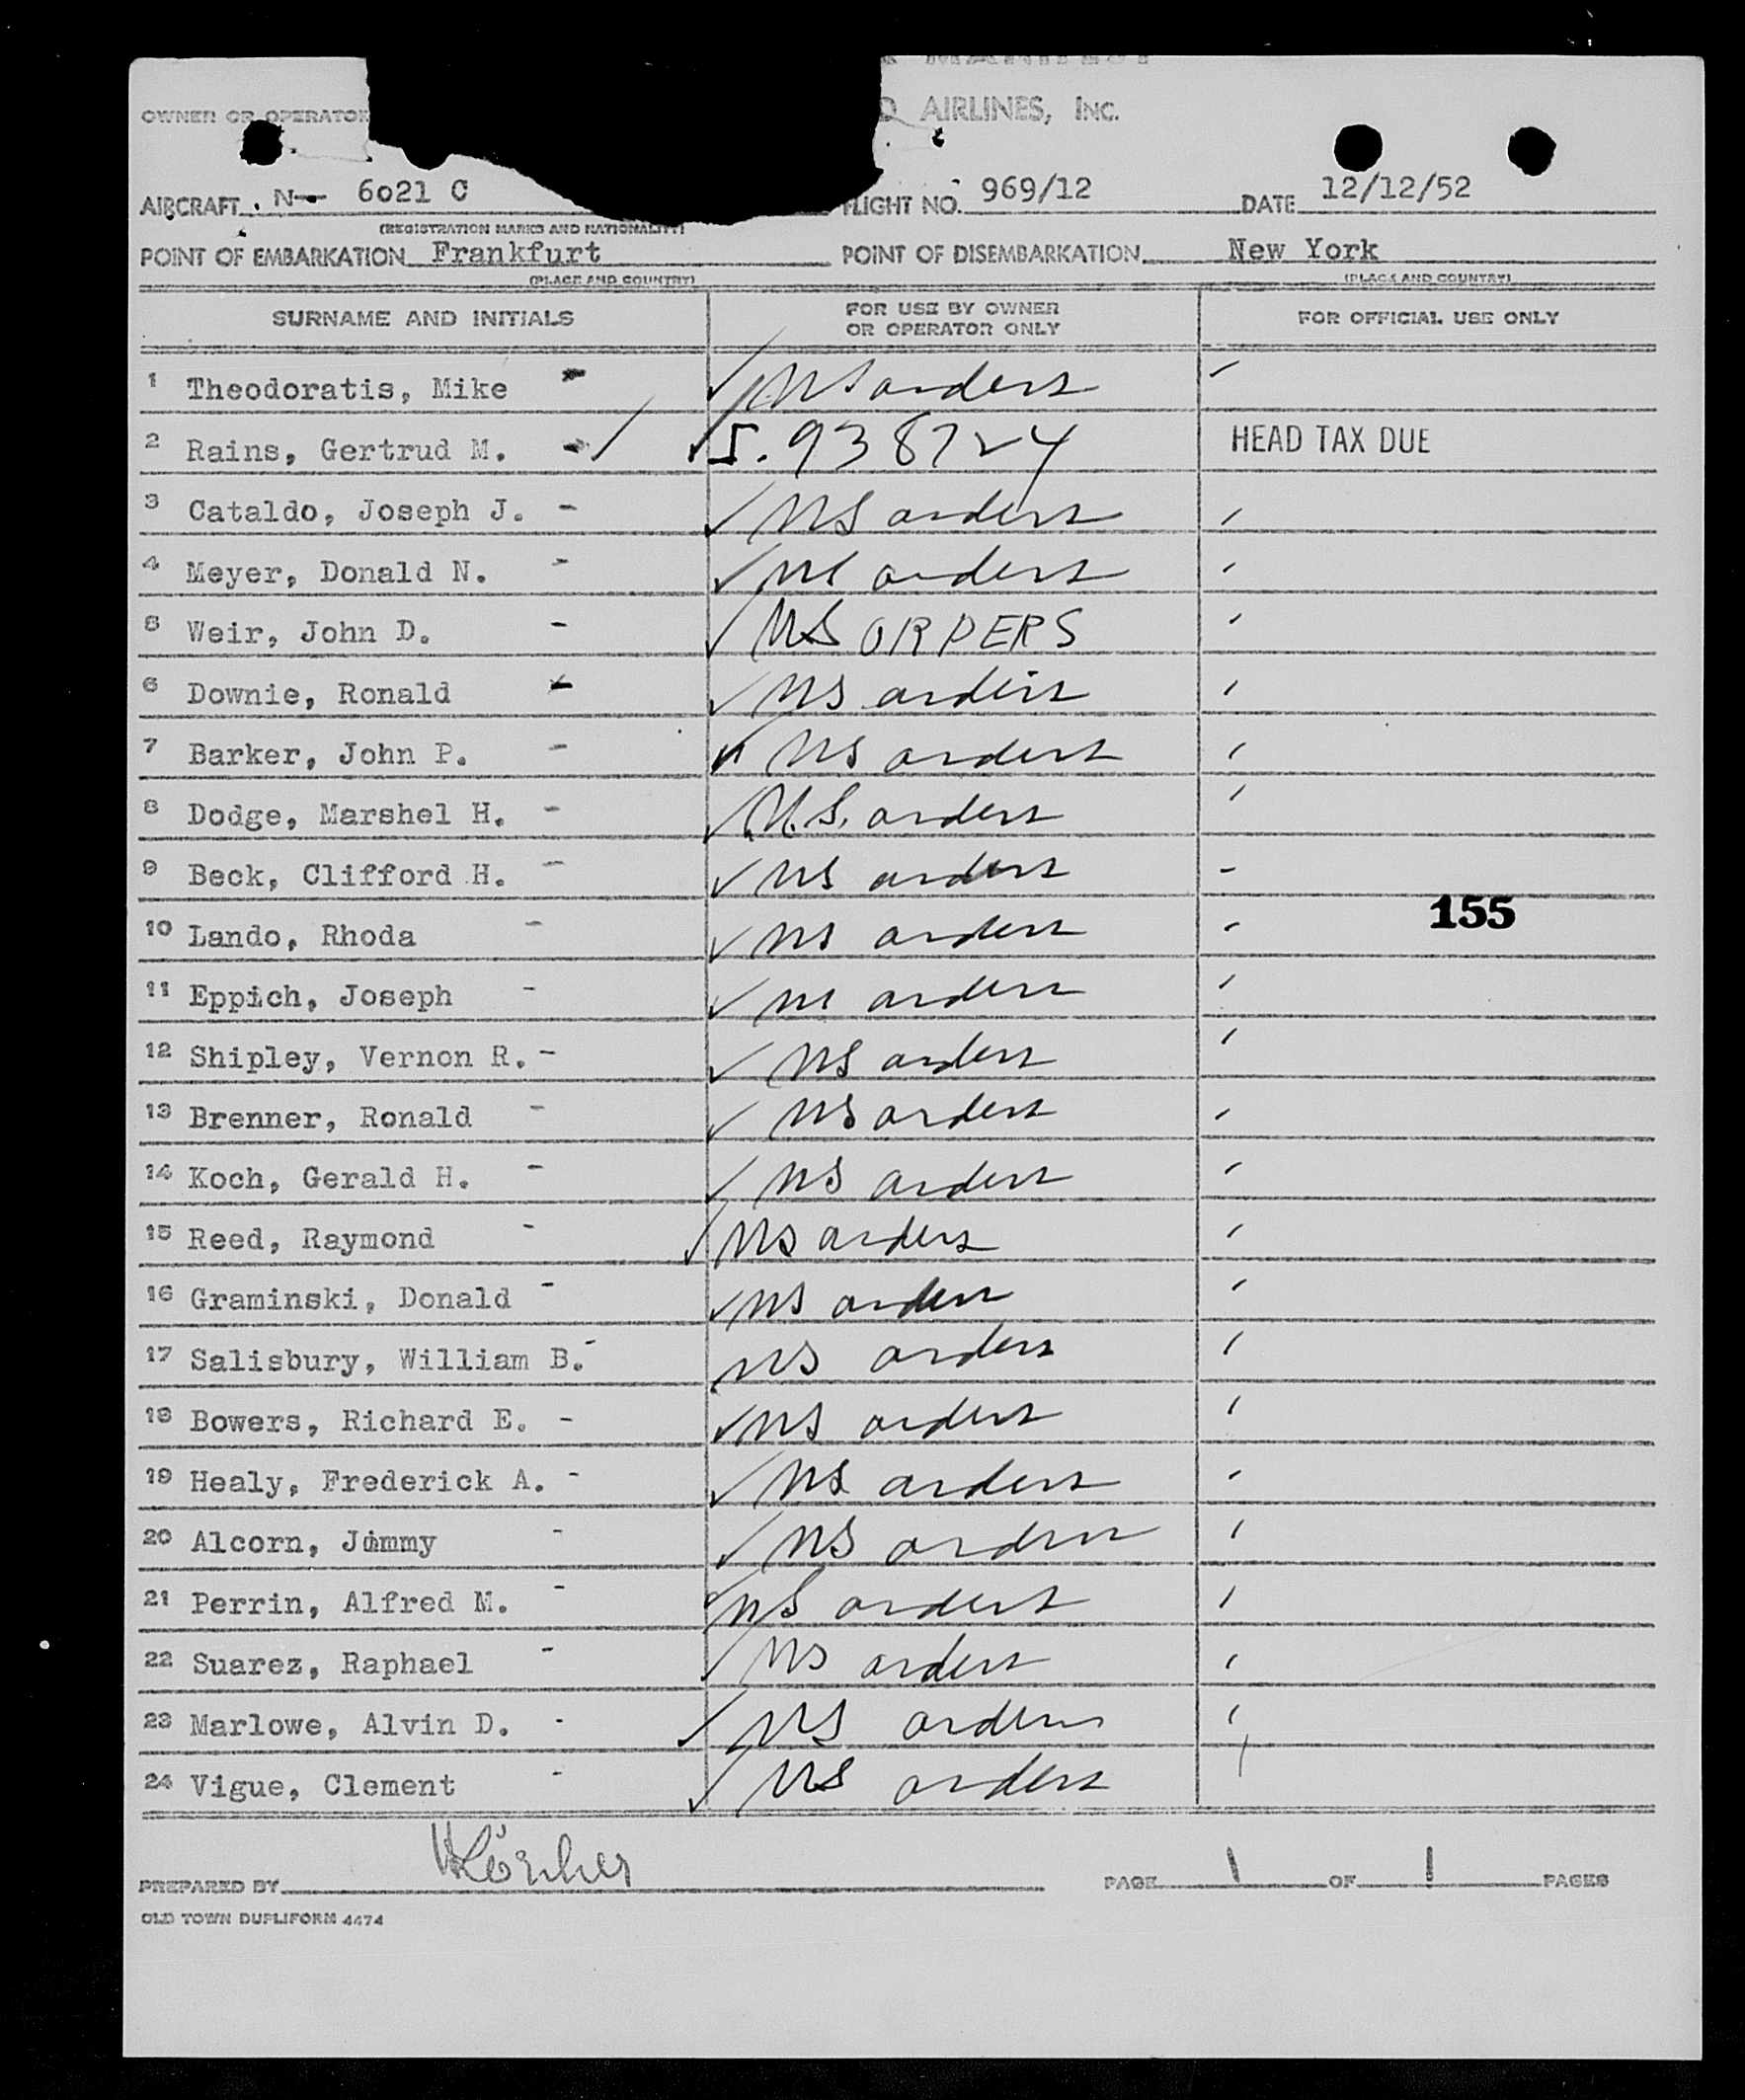 OWNER OR OPERATOR
AIRLINES, INC.
AIRCRAFT N— 6021 C FLIGHT NO. 969/12 DATE 12/12/52
(REGISTRATION MARKS AND NATIONALITY)
POINT OF EMBARKATION Frankfurt POINT OF DISEMBARKATION New York
(PLACE AND COUNTRY) (PLACE AND COUNTRY)
SURNAME AND INITIALS FOR USE BY OWNER OR OPERATOR ONLY FOR OFFICIAL USE ONLY
1 Theodoratis, Mike - ✓ US orders
2 Rains, Gertrud M. - ✓ 5.938724 HEAD TAX DUE
3 Cataldo, Joseph J. - ✓ US orders
4 Meyer, Donald N. - ✓ US orders
5 Weir, John D. - ✓ US ORDERS
6 Downie, Ronald - ✓ US orders
7 Barker, John P. - ✓ US orders
8 Dodge, Marshel H. - ✓ U.S. orders
9 Beck, Clifford H. - ✓ US orders
155
10 Lando, Rhoda - ✓ US orders
11 Eppich, Joseph - ✓ US orders
12 Shipley, Vernon R. - ✓ US orders
13 Brenner, Ronald - ✓ US orders
14 Koch, Gerald H. - ✓ US orders
15 Reed, Raymond - ✓ US orders
16 Graminski, Donald - ✓ US orders
17 Salisbury, William B. - US orders
18 Bowers, Richard E. - ✓ US orders
19 Healy, Frederick A. - ✓ US orders
20 Alcorn, Jimmy - ✓ US orders
21 Perrin, Alfred M. - ✓ US orders
22 Suarez, Raphael - ✓ US orders
23 Marlowe, Alvin D. - ✓ US orders
24 Vigue, Clement - ✓ US orders
PREPARED BY PAGE 1 OF 1 PAGES
OLD TOWN DUPLIFORM 4474